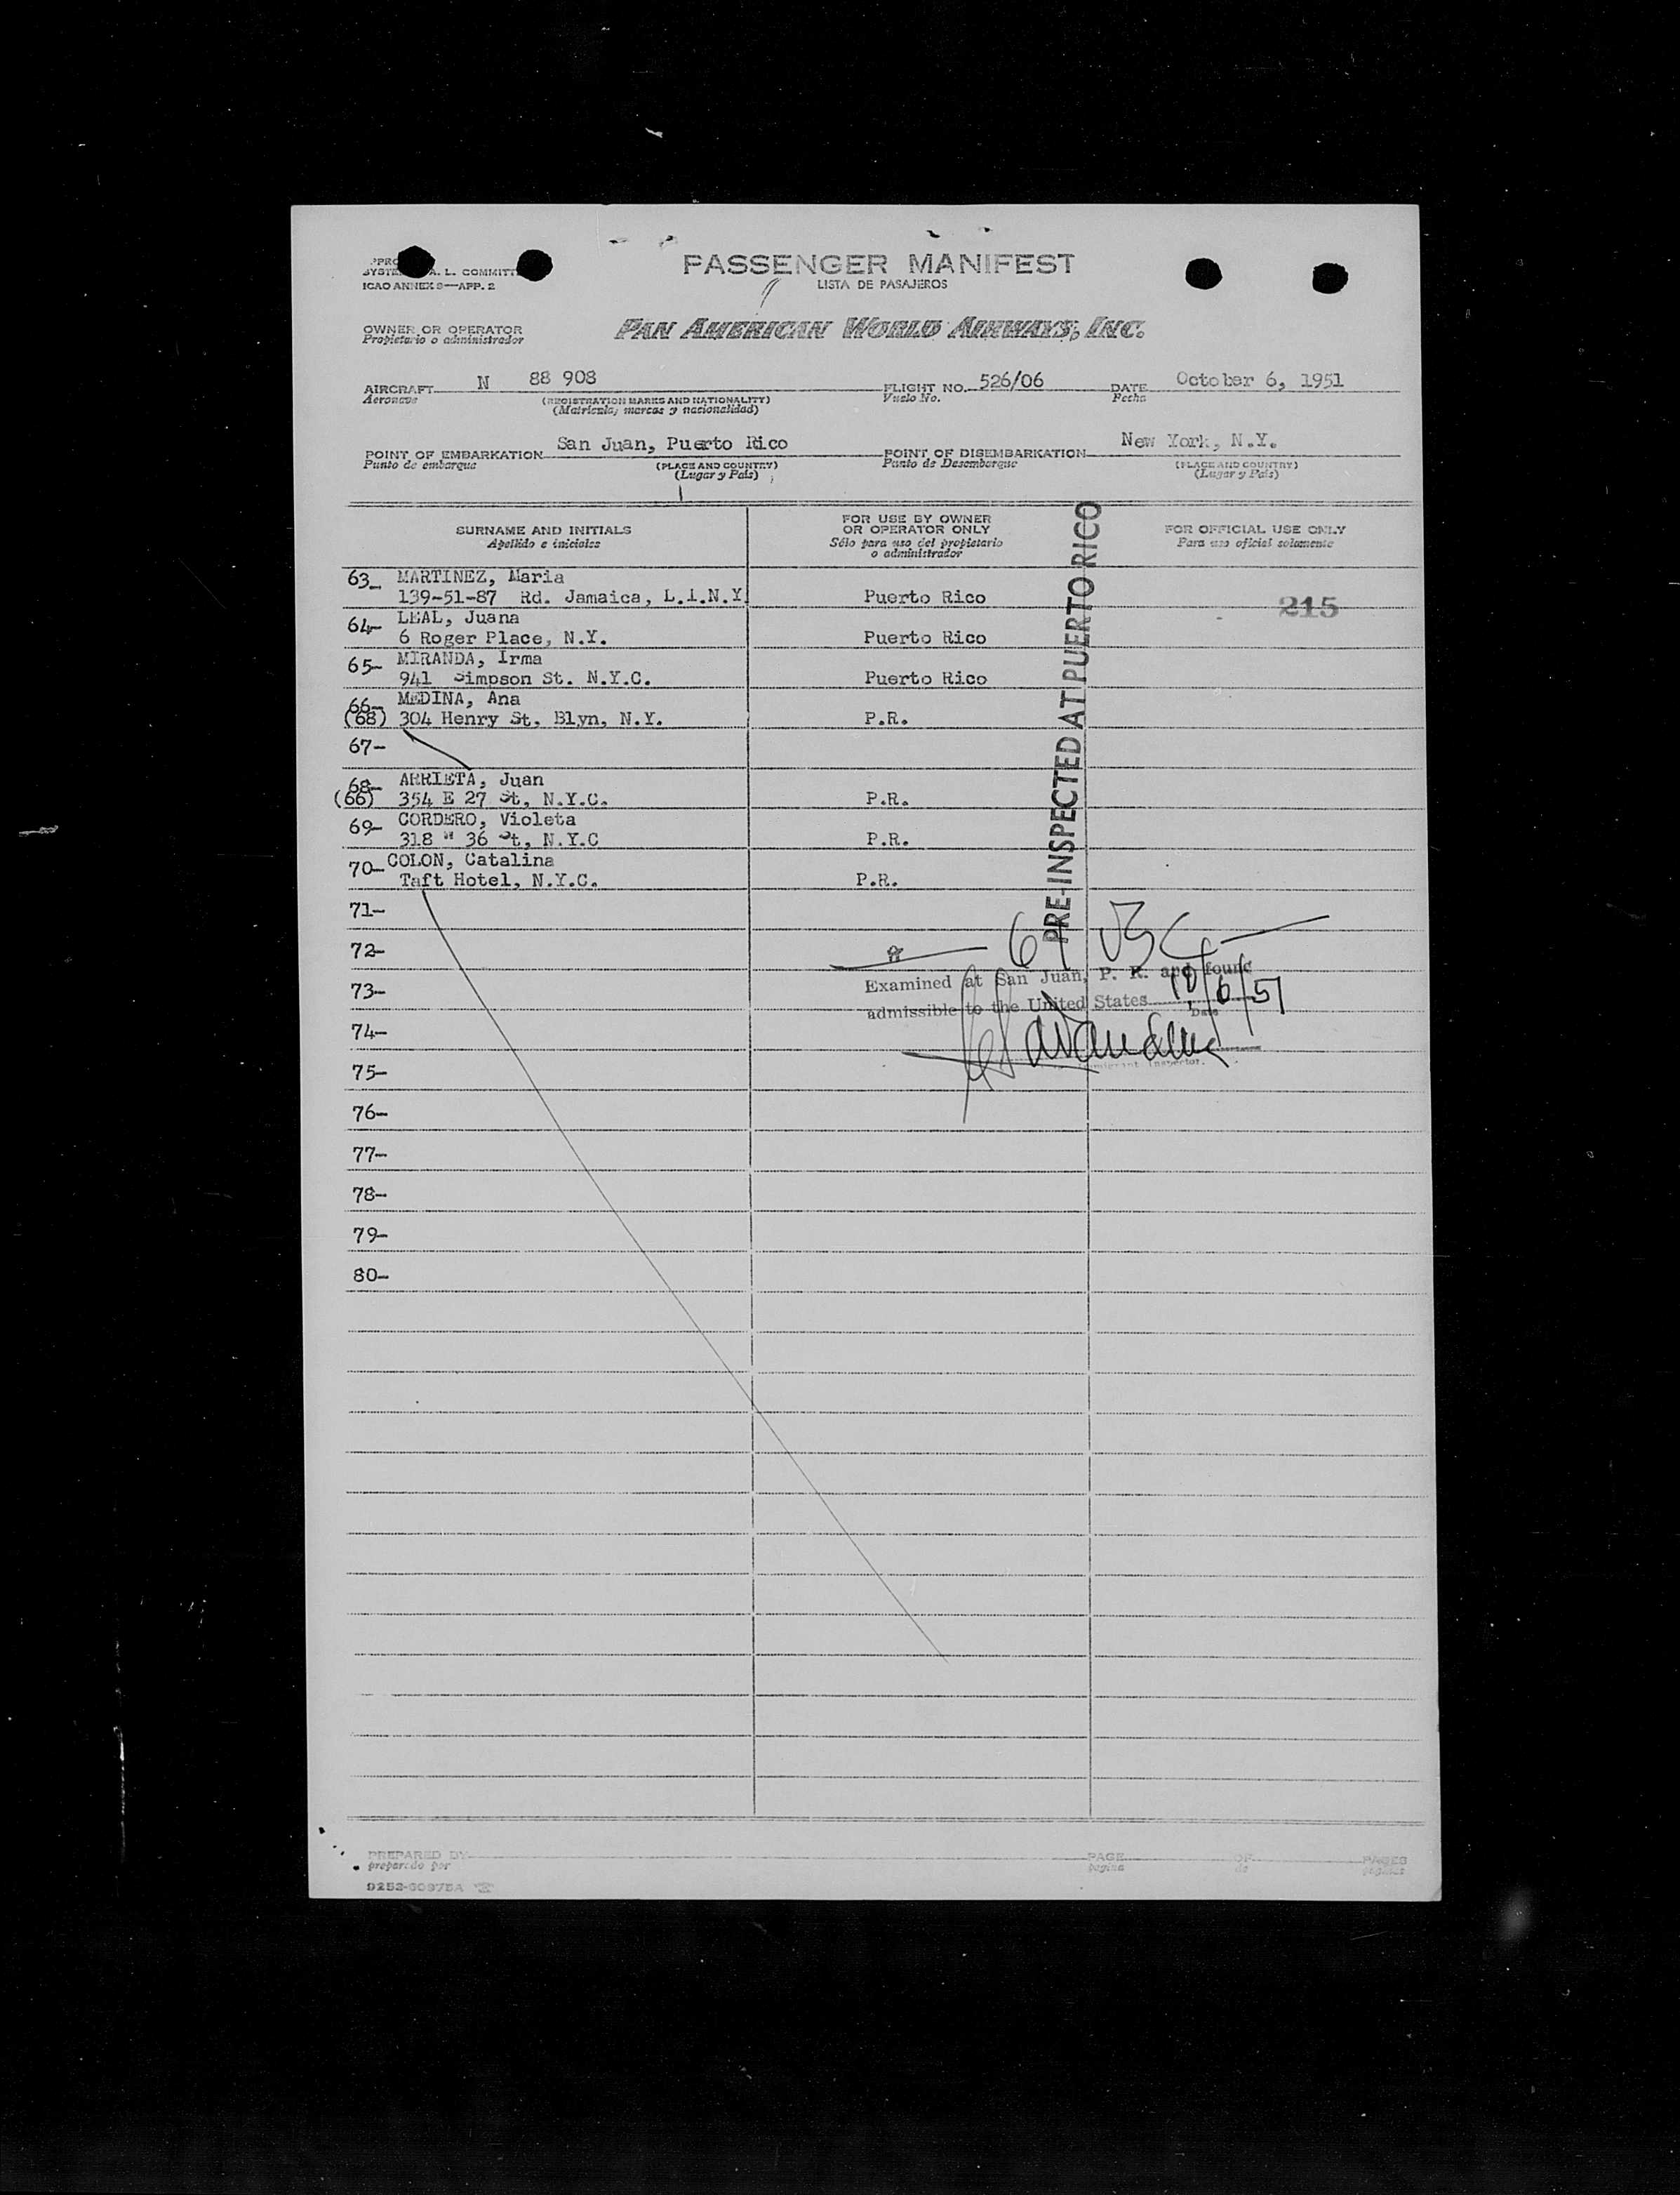 PASSENGER MANIFEST
LISTA DE PASAJEROS
A. L. COMMITT
ICAO ANNEX 9—APP. 2
OWNER OR OPERATOR
Propietario o administrador
PAN AMERICAN WORLD AIRWAYS, INC.
AIRCRAFT N 88 908 FLIGHT NO. 526/06 DATE October 6, 1951
Aeronave (REGISTRATION MARKS AND NATIONALITY) Vuelo No. Fecha
(Matricula, marcas y nacionalidad)
POINT OF EMBARKATION San Juan, Puerto Rico POINT OF DISEMBARKATION New York, N.Y.
Punto de embarque (PLACE AND COUNTRY) Punto de Desembarque (PLACE AND COUNTRY)
(Lugar y País) (Lugar y País)
SURNAME AND INITIALS
Apellido e iniciales
FOR USE BY OWNER
OR OPERATOR ONLY
Sólo para uso del propietario
o administrador
FOR OFFICIAL USE ONLY
Para uso oficial solamente
63- MARTINEZ, Maria
139-51-87 Rd. Jamaica, L.I.N.Y. Puerto Rico 215
64- LEAL, Juana
6 Roger Place, N.Y. Puerto Rico
65- MIRANDA, Irma
941 Simpson St. N.Y.C. Puerto Rico
66- MEDINA, Ana
(68) 304 Henry St, Blyn, N.Y. P.R.
67-
68- ARRIETA, Juan
(66) 354 E 27 St, N.Y.C. P.R.
69- CORDERO, Violeta
318 W 36 St, N.Y.C P.R.
70- COLON, Catalina
Taft Hotel, N.Y.C. P.R.
PRE-INSPECTED AT PUERTO RICO
71-
72-
73-
74-
75-
76-
77-
78-
79-
80-
Examined at San Juan, P. R. and found
admissible to the United States 10/6/51
Date
Immigrant Inspector.
PREPARED BY PAGE OF PAGES
preparado por pagina de paginas